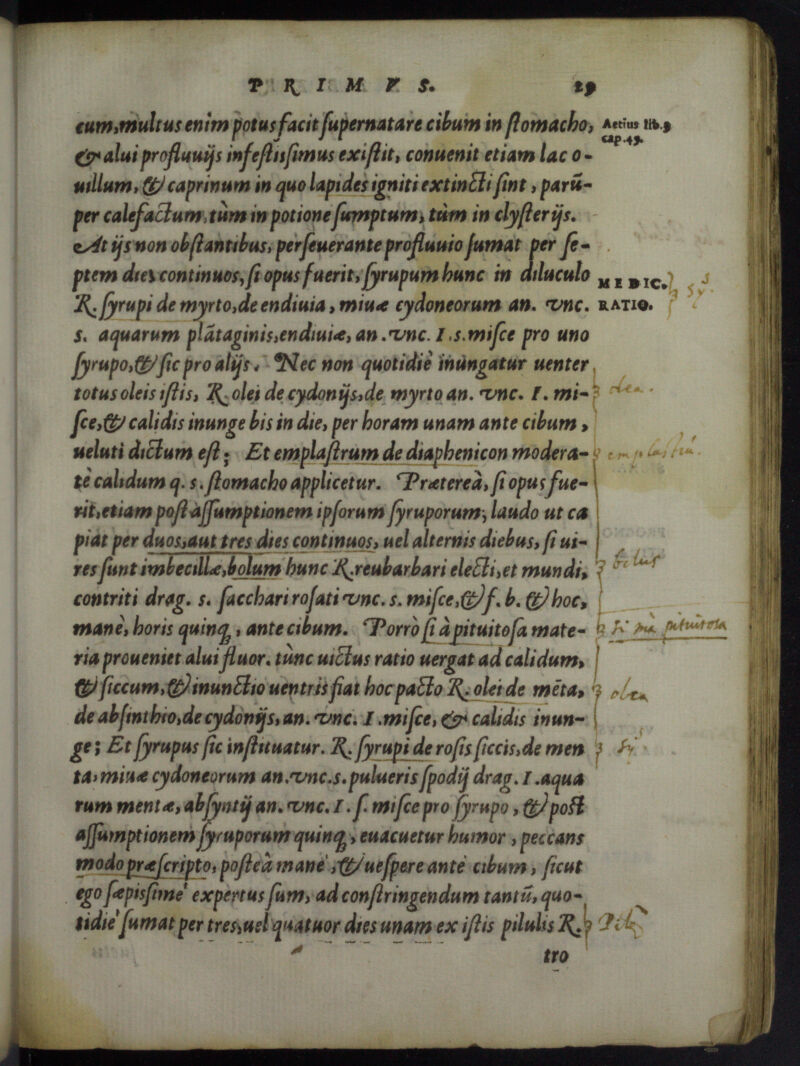 PRIMVS. 29
cum, multus enim potus facit supernatare cibum in stomacho, Aetius lib. 9
& alui profluuijs infestissimus existit, conuenit etiam lac o- cap. 49.
uillum, & caprinum in quo lapides igniti extincti sint, parū-
per calefactum, tùm in potione sumptum, tùm in clysterijs.
At ijs non obstantibus, perseuerante profluuio sumat per se-
ptem dies continuos, si opus fuerit, syrupum hunc in diluculo MEDIC.
℞. syrupi de myrto, de endiuia, miuæ cydoneorum an. vnc. RATIO.
s. aquarum plātaginis, endiuiæ, an. vnc. I. s. misce pro uno
syrupo, & sic pro alijs. Nec non quotidiè inungatur uenter
totus oleis istis, ℞. olei de cydonijs, de myrto an. vnc. I. mi- olea.
sce, & calidis inunge bis in die, per horam unam ante cibum,
ueluti dictum est; Et emplastrum de diaphenicon modera-
tè calidum q. s. stomacho applicetur. Præterea, si opus fue-
rit, etiam post assumptionem ipsorum syruporum, laudo ut ca
piāt per duos, aut tres dies continuos, uel alternis diebus, si ui-
res sunt imbecillæ, bolum hunc ℞. reubarbari electi, et mundi, bolus
contriti drag. s. sacchari rosati vnc. s. misce, & f. b. & hoc,
manè, horis quinq, ante cibum. Porrò si à pituitosa mate- si mā pituitosa
ria proueniet alui fluor. tunc uictus ratio uergat ad calidum,
& siccum, & inunctio uentris fiat hoc pacto ℞. olei de mēta, olea
de absinthio, de cydonijs, an. vnc. I. misce, & calidis inun-
ge; Et syrupus sic instituatur. ℞. syrupi de rosis siccis, de men sy
ta, miuæ cydoneorum an. vnc. s. pulueris spodij drag. I. aqua
rum mentæ, absyntij an. vnc. I. s. misce pro syrupo, & post
assumptionem syruporum quinq, euacuetur humor, peccans
modo præscripto, posteà manè, & uespere antè cibum, sicut
ego sæpissimè expertus sum, ad constringendum tantū, quo-
tidiè sumat per tres, uel quatuor dies unam ex istis pilulis ℞. Pil
tro